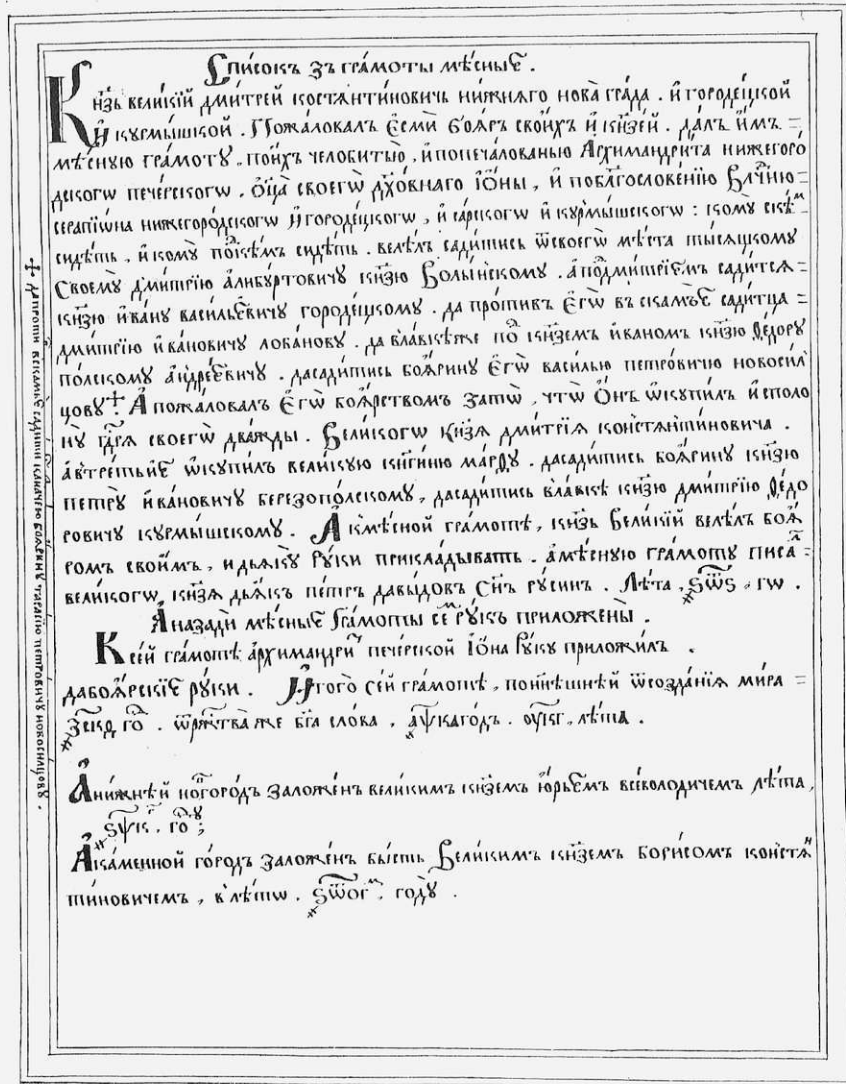 Списокъ зъ грамоты мѣсныє.
Кн҃зь великїй дмитрей костянтиновичь нижняго нова града . и городецкой
и курмышской . Пожаловалъ єсми бояръ своихъ и кн҃зей . далъ имъ =
мѣсную грамоту , поихъ челобитью , и попечалованью Архимандрита нижегоро
дскогѡ печерскогѡ . ѻц҃а своегѡ дх҃овнаго Іѡны , и поблг҃ословенїю Влⷣчню =
серапїѡна нижегородскогѡ и городецкогѡ , и сарскогѡ и курмышскогѡ : кому скѣⷨ
сидѣть , и кому поⷣкѣмъ сидѣть . велѣлъ садитись ѿсвоегѡ мѣста тысяцкому
Своемꙋ дмитрїю алибуртовичꙋ кн҃зю Волынскомꙋ . а поⷣдмитрїємъ садится =
кн҃зю иванꙋ васильєвичꙋ городецкомꙋ . да противъ єгѡ въ скамьє садитца =
дмитрїю ивановичꙋ лобановꙋ . да влавкѣже поⷣ кн҃земъ иваномъ кн҃зю ѳедорꙋ
полскомꙋ андреєвичꙋ . дасадитись бояринꙋ єгѡ василью петровичю новосил
цовꙋ ⁘ А пожаловалъ єгѡ боярствомъ затѡ , чтѡ ѻнъ ѡкупилъ исполо
нꙋ гд҃ря своегѡ дважды . Великогѡ кн҃зя дмитрїя констянтиновича .
автретьиє ѡкупилъ великую кн҃гиню марѳꙋ . дасадитись бояринꙋ кн҃зю
петрꙋ ивановичꙋ березополскомꙋ , дасадитись влавкѣ кн҃зю дмитрїю ѳедо
ровичꙋ курмышскомꙋ . А кмѣсной грамотѣ , кн҃зь Великїй велѣлъ боя
ромъ своимъ , и дьякꙋ рꙋки прикладывать . амѣсную грамотꙋ писаⷧ =
великогѡ кн҃зя дьякъ петръ давыдовъ сн҃ъ рꙋсинъ . Лѣта , ҂ѕѿѕ . гѡ .
А назади мѣсныє грамоты сеⷨ рꙋкъ приложены .
К сей грамотѣ архимандриⷮ печерской Іѡна рꙋкꙋ приложилъ .
дабоярскїє рꙋки . И того сей грамотѣ , понн҃ѣшнѣй ѿсозданїя мира =
҂зскѳ гоⷣ . ѿржⷭтва же бг҃а слова , ҂аѱкагодъ . ѹкг , лѣта .
А нижнѣй ноⷡгородъ заложенъ великимъ кн҃земъ юрьємъ всеволодичемъ лѣта ,
҂ѕѱк , гоⷣꙋ ;
А каменной городъ заложенъ бысть Великимъ кн҃земъ борисомъ констяⷩ
тиновичемъ , влѣтѡ . ҂ѕѿогⷨ . годꙋ .
✢ Да противъ вскамьє садитись бояринꙋ тарасїю петровичꙋ новосилцовꙋ .